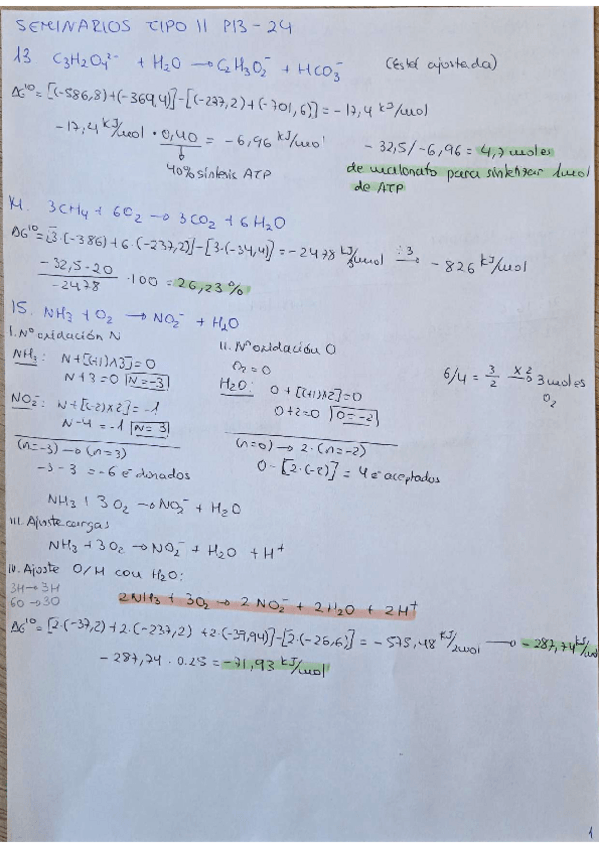 SEMINARIOS TIPO II P13-24
13 C3H2O4²⁻ + H2O → C2H3O2⁻ + HCO3⁻ (Está ajustada)
ΔG'⁰ = [(-586,8)+(-369,4)]-[(-237,2)+(-701,6)] = -17,4 kJ/mol
-17,4 kJ/mol · 0,40 = -6,96 kJ/mol
40% síntesis ATP
-32,5/-6,96 = 4,7 moles
de malonato para sintetizar 1mol
de ATP
14. 3CH4 + 6O2 → 3CO2 + 6H2O
ΔG'⁰ = [3·(-386)+6·(-237,2)]-[3·(-34,4)] = -2478 kJ/3mol :3 → -826 kJ/mol
-32,5·20/-2478 · 100 = 26,23%
15. NH3 + O2 → NO2⁻ + H2O
I. Nº oxidación N
NH3: N+[(+1)x3]=0
N+3=0 N=-3
NO2⁻: N+[(-2)x2]=-1
N-4=-1 N=3
(n=-3) → (n=3)
-3-3 = -6 é donados
II. Nº oxidación O
O2=0
H2O: O+[(+1)x2]=0
O+2=0 O=-2
(n=0) → 2·(n=-2)
0-[2·(-2)] = 4 é aceptados
6/4 = 3/2 x2 → 3 moles
O2
NH3 + 3O2 → NO2⁻ + H2O
III. Ajuste cargas
NH3 + 3O2 → NO2⁻ + H2O + H⁺
IV. Ajuste O/H con H2O:
3H → 3H
6O → 3O
2NH3 + 3O2 → 2NO2⁻ + 2H2O + 2H⁺
ΔG'⁰ = [2·(-37,2)+2·(-237,2)+2·(-39,94)]-[2·(-26,6)] = -575,48 kJ/2mol → -287,74 kJ/mol
-287,74 · 0.25 = -71,93 kJ/mol
1